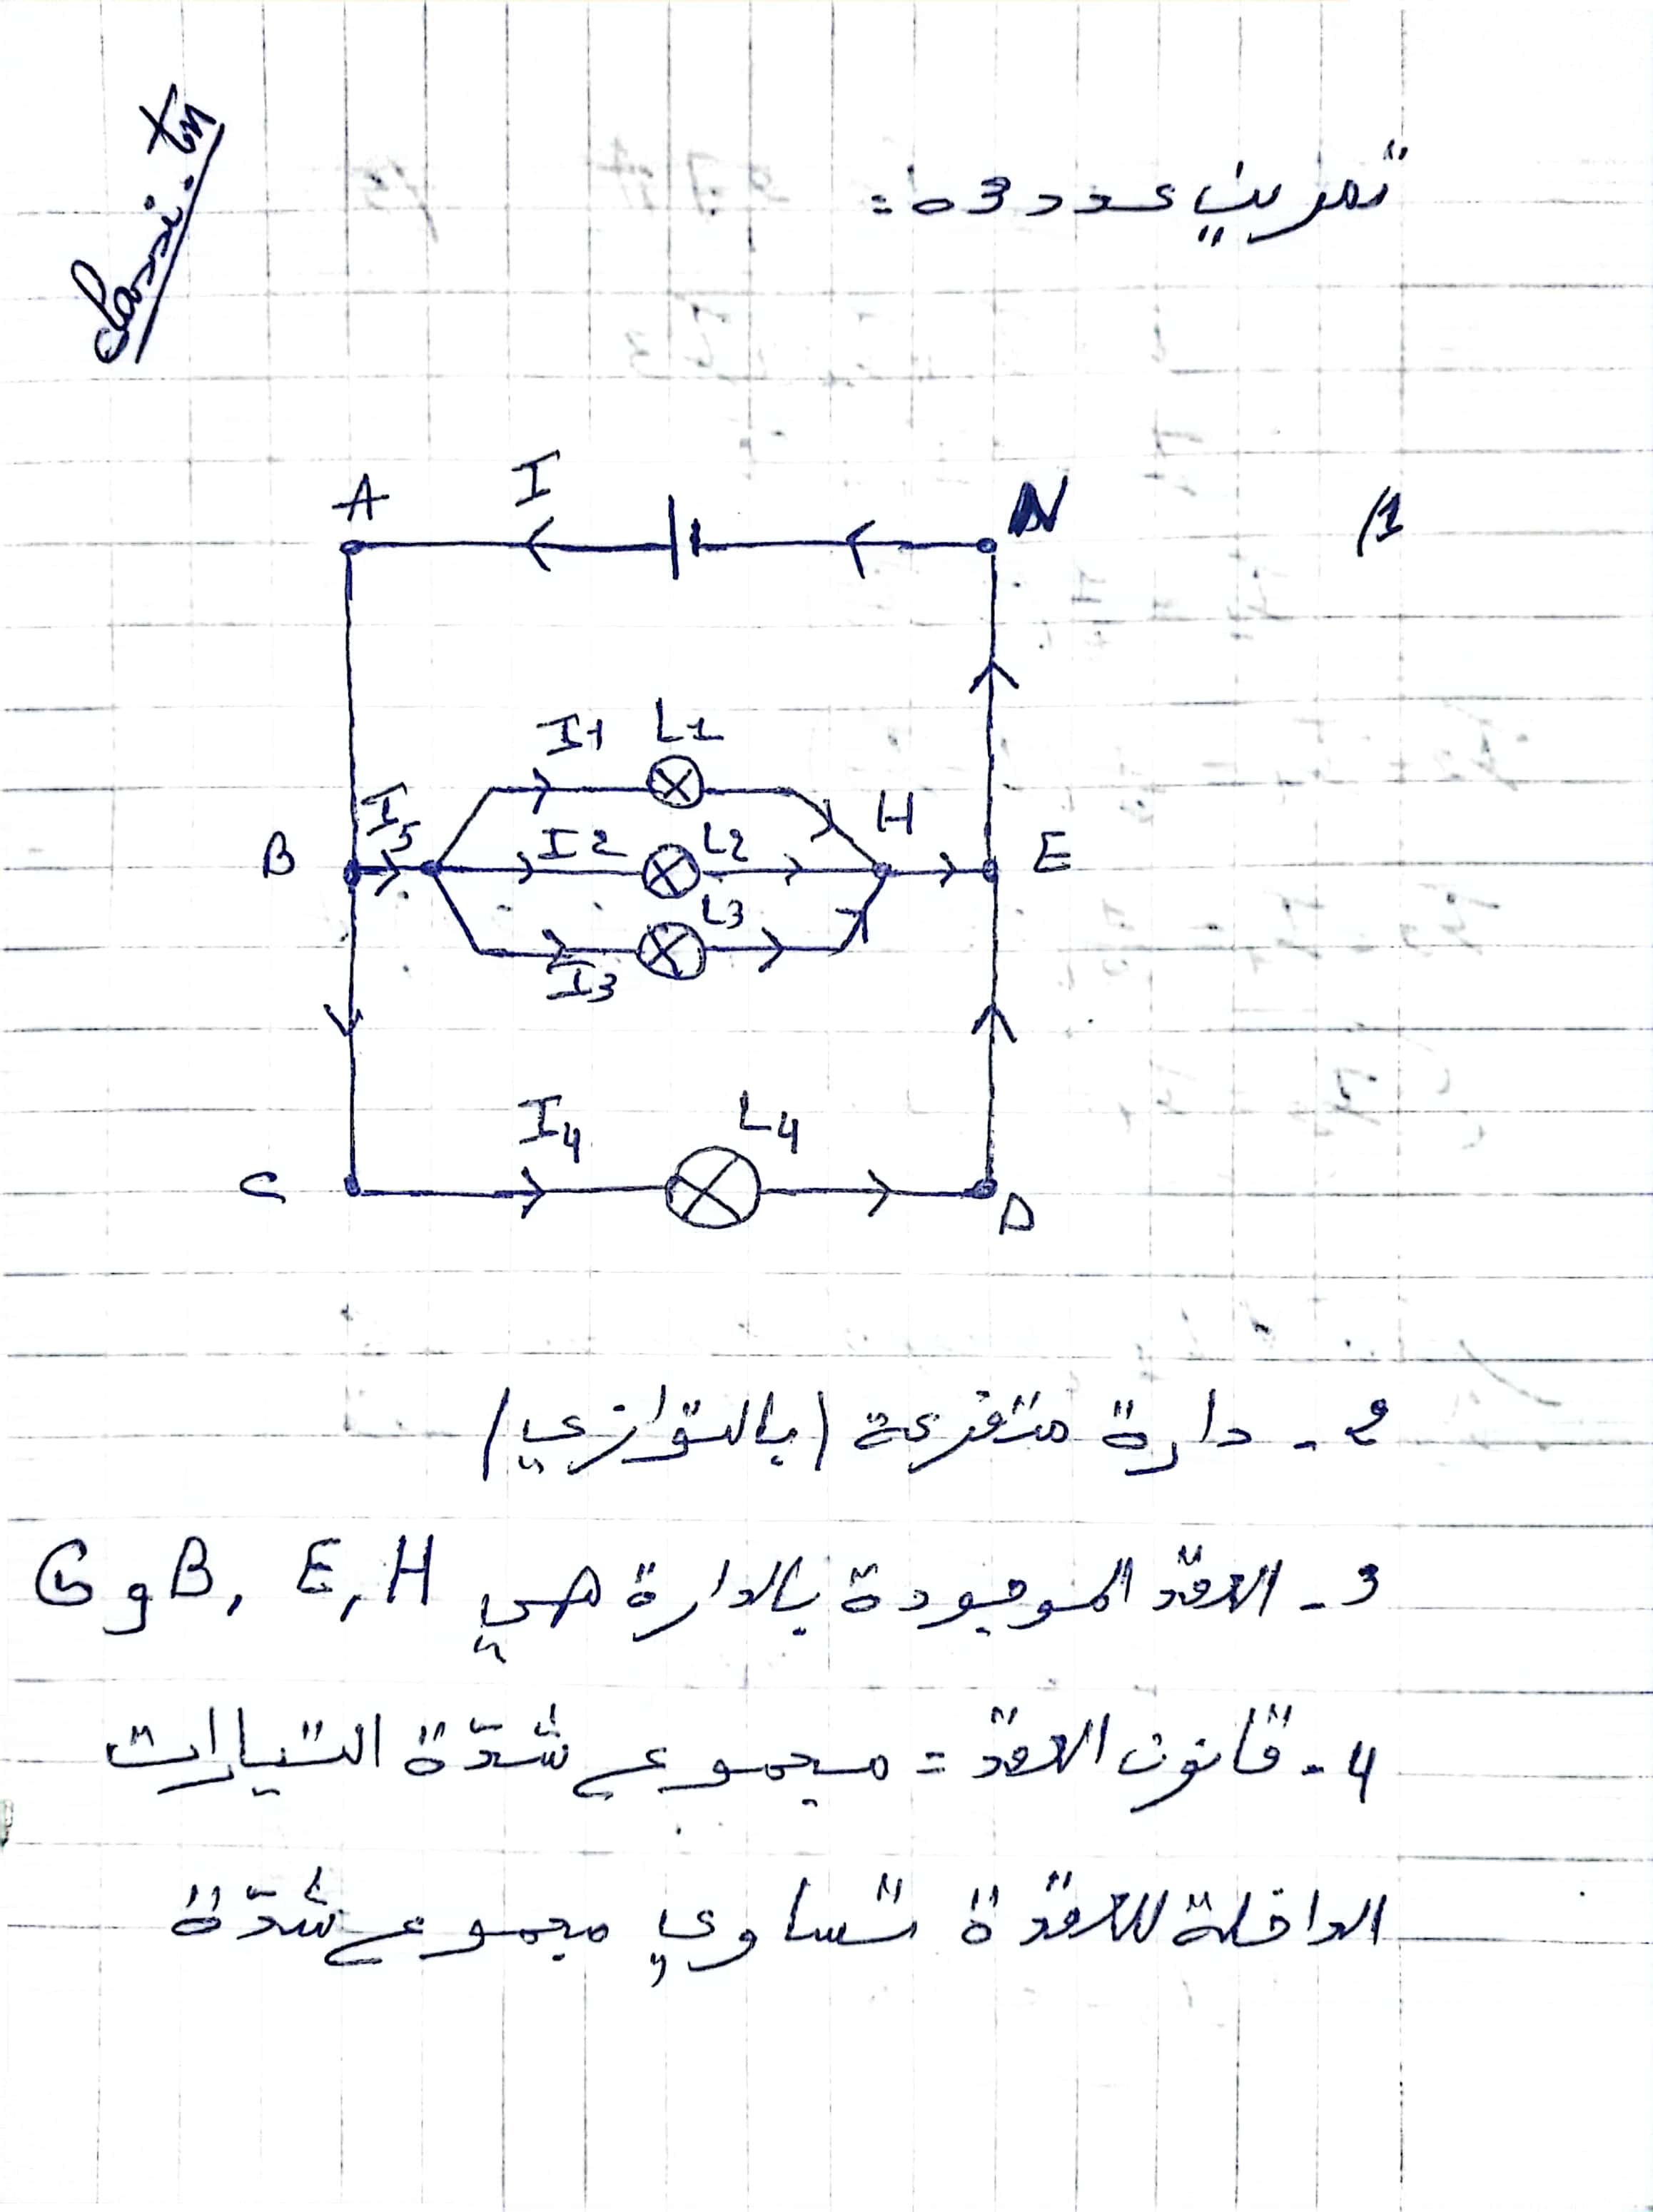 تمرين عدد 03:
1/
A
I
N
I1
L1
I5
I2
L2
H
B
E
L3
I3
I4
L4
C
D
2- دارة متفرعة (بالتوازي)
3- العقد الموجودة بالدارة هي B, E, H و G
4- قانون العقد = مجموع شدّة التيارات
الداخلة للعقدة تساوي مجموع شدّة